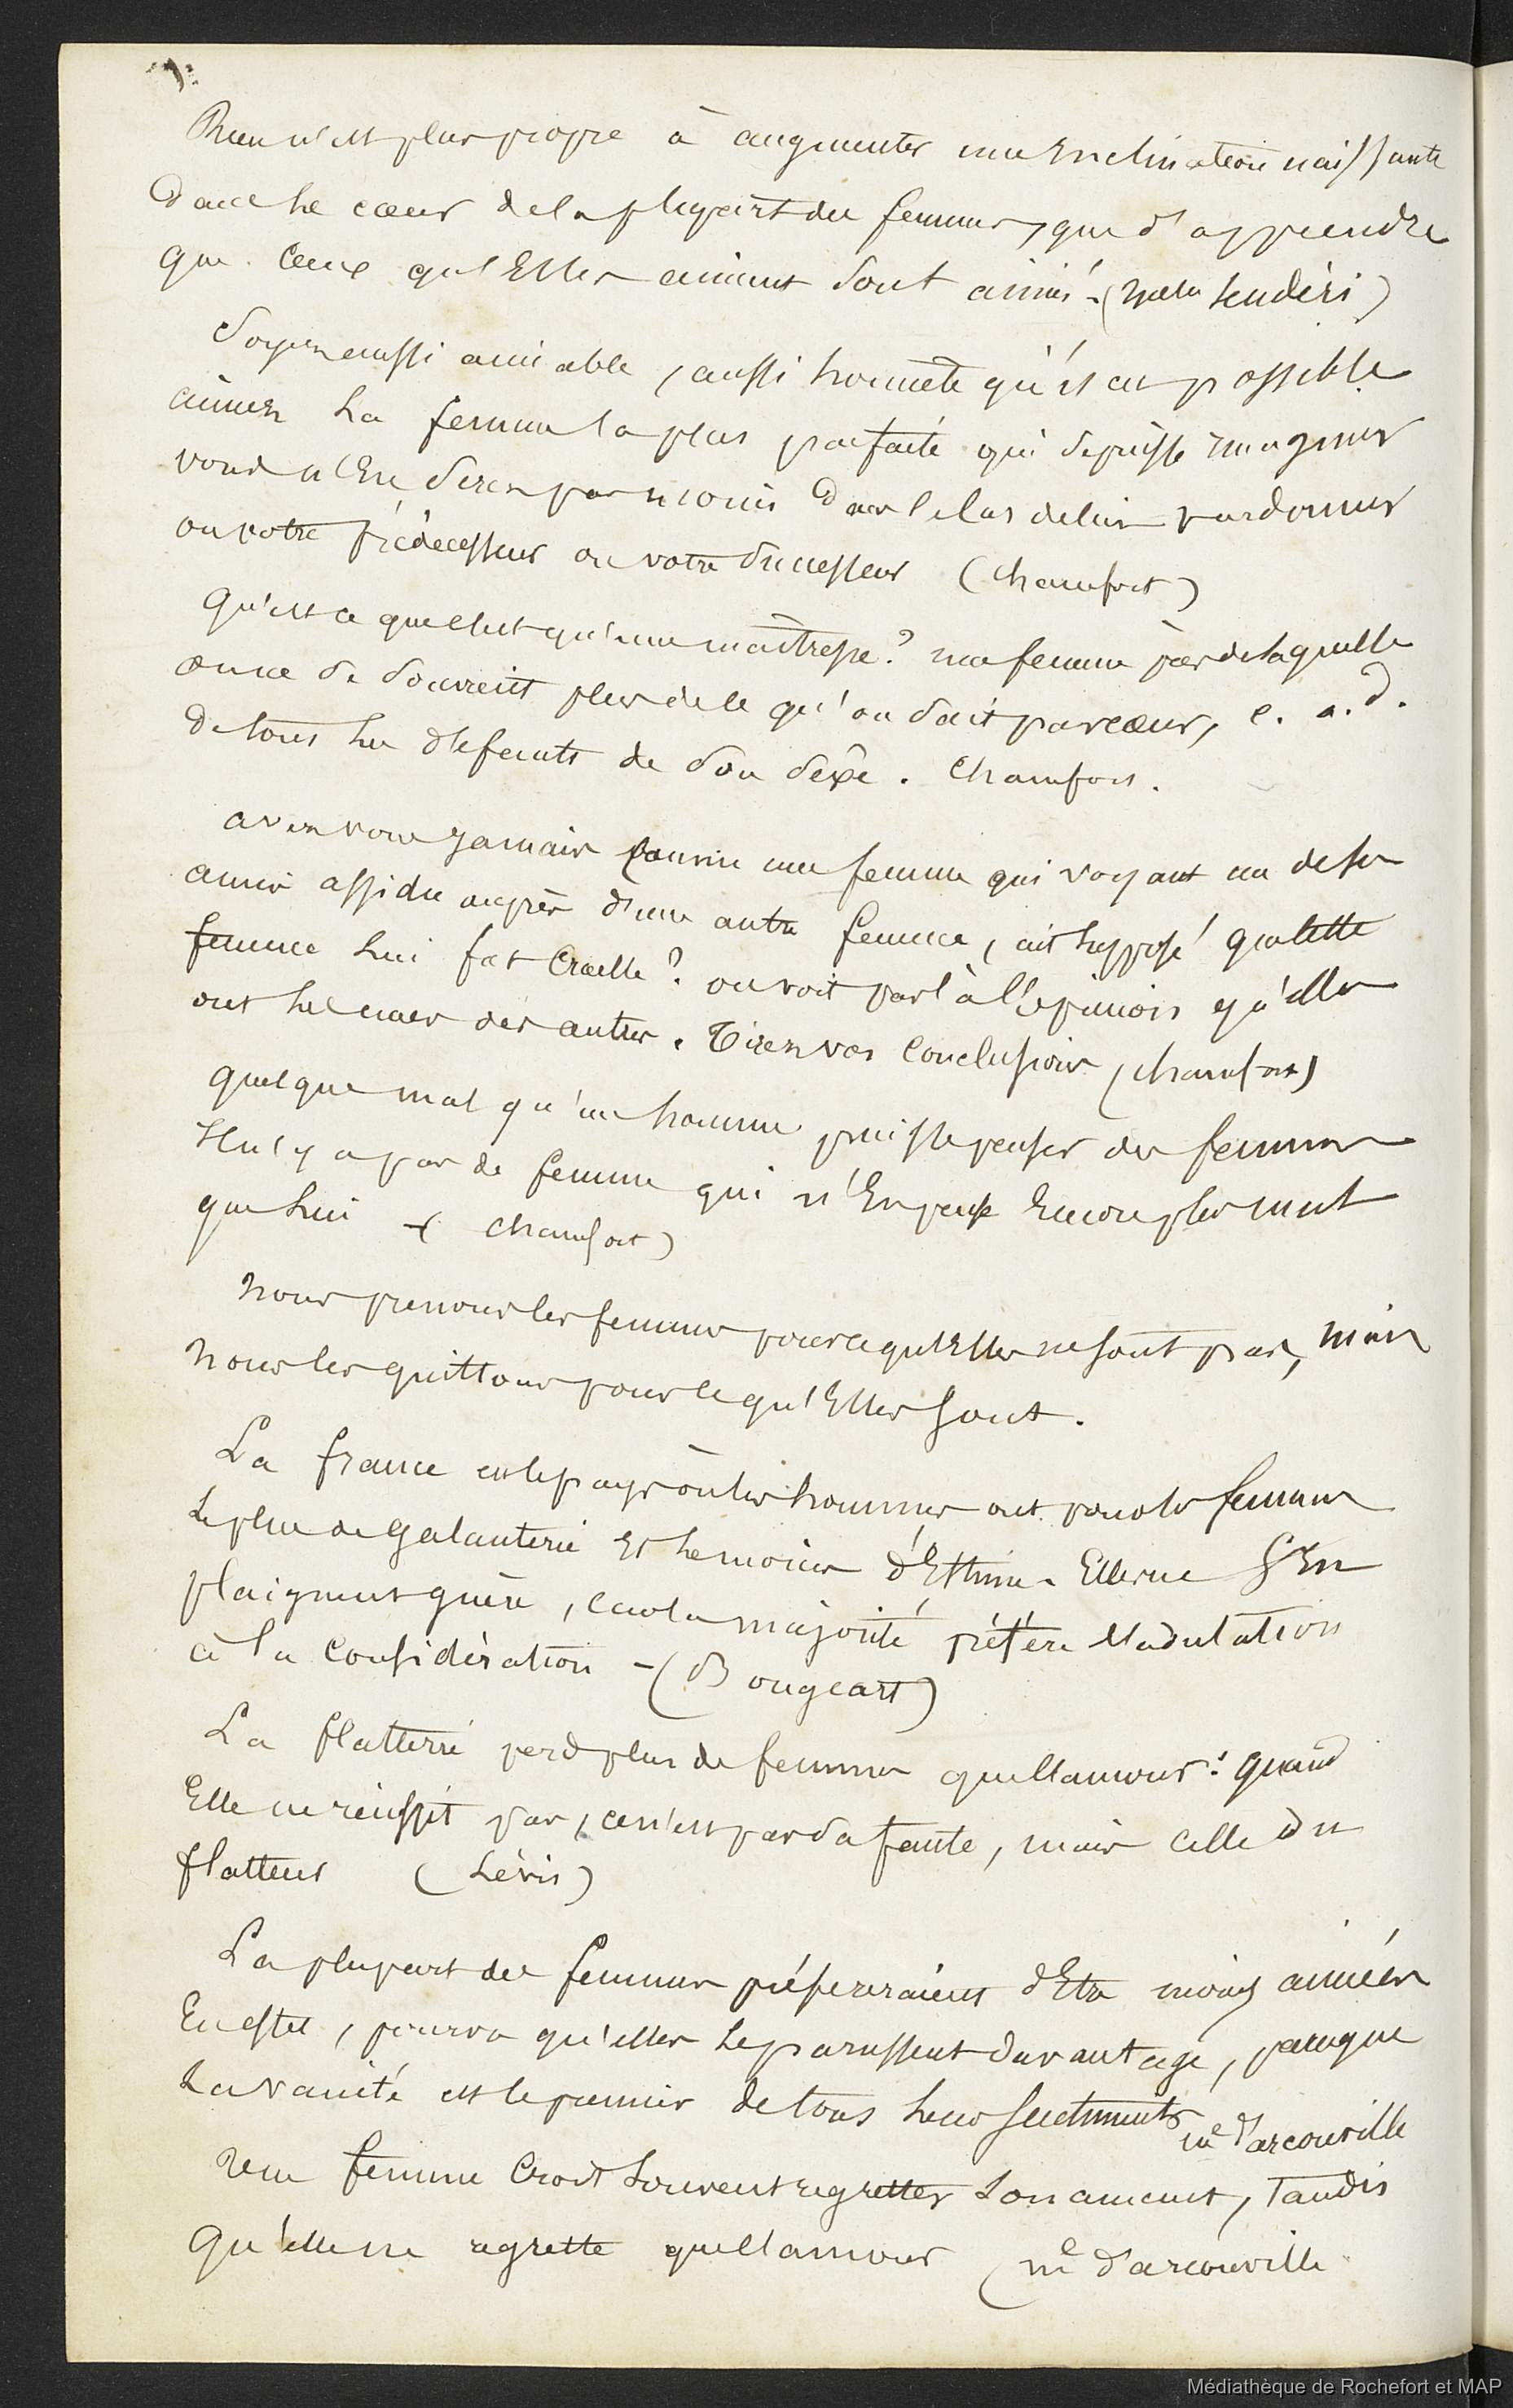 Rien n'est plus propre à augmenter une Enclination naissante
Dans le cœur de la plupart des femmes, que d'apprendre
que ceux qu'Elles aiment sont aimés - (Melle Scudéri)
Soyez aussi aimable, aussi honnête qu'il est possible
aimez la femme la plus parfaite qui se puisse imaginer
vous n'En serez pas moins Dans le cas de lui pardonner
ou votre prédécesseur ou votre successeur (Chamfort)
Qu'est ce que c'est qu'une maitresse? une femme près de laquelle
on ne se souvient plus de ce qu'on sait par cœur, c. a. d.
De tous les défauts de son sexe. Chamfort.
avez vous jamais connu une femme qui voyant un de ses
amis assidu auprès d'une autre femme, ait supposé que cette
femme lui fut cruelle? on voit par là l'opinion qu'elles
ont les unes des autres. Tirez vos conclusions (Chamfort)
quelque mal qu'un homme puisse penser des femmes
Il n'y a pas de femme qui n'En pense Encore plus mal
que lui - (Chamfort)
Nous prenons les femmes pour ce qu'Elles ne sont pas, mais
Nous les quittons pour ce qu'Elles sont.
La france est le pays où les hommes ont pour les femmes
le plus de galanterie Et le moins d'Estime - Elles ne s'En
plaignent guère, car la majorité préfère l'adulation
à la considération - (Bougeart)
La flatterie perd plus de femmes que l'amour: quand
Elle ne réussit pas, ce n'est pas sa faute, mais celle du
flatteur (Lévis)
La plupart des femmes préfereraient d'Etre moins aimées
En effet, pourvu qu'elles le parussent davantage, parceque
La vanité est le premier de tous leurs sentiments me d'arconville
Une femme Croit souvent regretter son amant, Tandis
Qu'elle ne regrette que l'amour (me d'arconville
Médiathèque de Rochefort et MAP